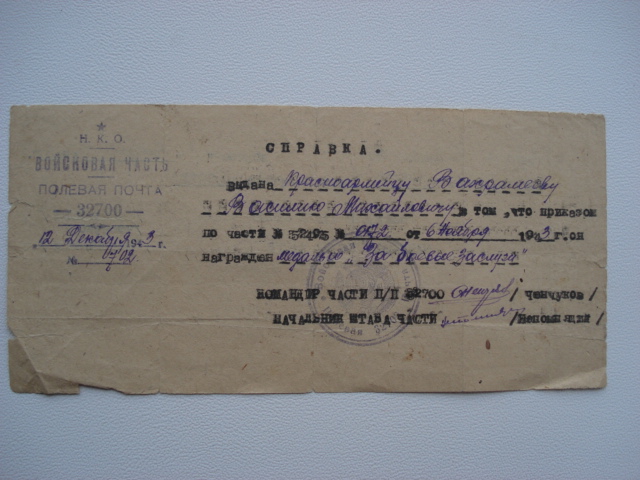 Н. К. О.
ВОЙСКОВАЯ ЧАСТЬ
ПОЛЕВАЯ ПОЧТА
— 32700 —
12 Декабря 1943 г.
№ 702
СПРАВКА.
Выдана Красноармейцу
Михайловичу в том, что приказом
по части № от 6 Ноября 1943 г. он
награжден медалью "За боевые заслуги"
КОМАНДИР ЧАСТИ П/П 32700 / Ченчуков /
НАЧАЛЬНИК ШТАБА ЧАСТИ /Непомнящий /